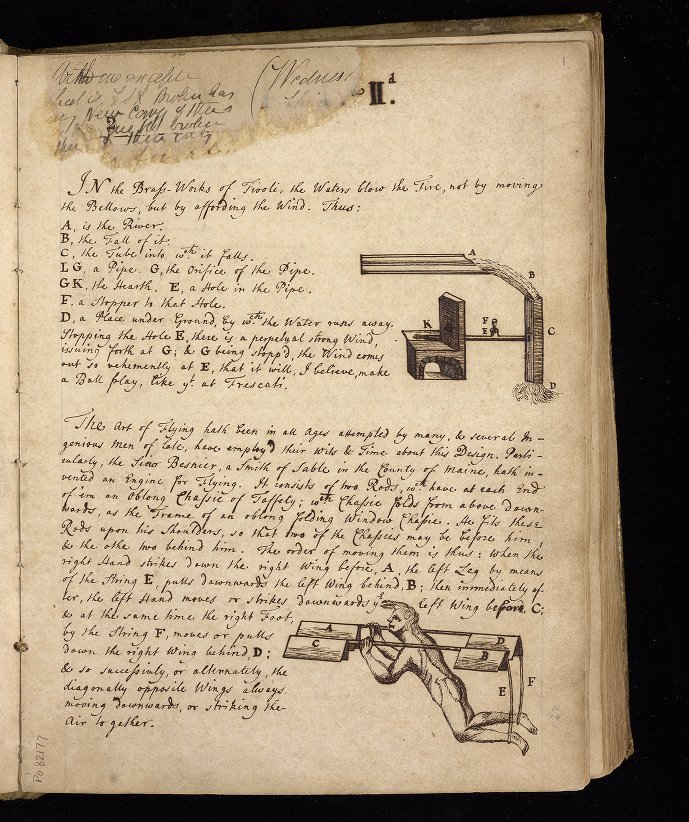 (Wednes
II.d
1
IN the Brass-Works of Tivoli, the Waters blow the Fire, not by moving
the Bellows, but by affording the Wind. Thus:
A, is the River.
B, the Fall of it
C, the Tube into wch it falls.
LG, a Pipe. G, the Orifice of the Pipe.
GK, the Hearth. E, a Hole in the Pipe.
F, a Stopper to that Hole.
D, a Place under Ground, by wch the Water runs away.
Stopping the Hole E, there is a perpetual strong Wind,
issuing forth at G; & G being stopp'd, the Wind comes
out so vehemently at E, that it will, I believe, make
a Ball play, like yt at Frescati.
A
B
K
F
E
C
D
The Art of Flying hath been in all Ages attempted by many, & several In-
genious Men of late, have employ'd their Wits & Time about this Design. Parti-
cularly, the Sieur Besnier, a Smith of Sable in the County of Maine, hath in-
vented an Engine for Flying. It consists of two Rods, wch have at each End
of 'em an Oblong Chassie of Taffety; wch Chassie folds from above down-
wards, as the Frame of an oblong folding Window Chassie. He fits these
Rods upon his Shoulders, so that two of the Chassies may be before him,
& the othe two behind him. The order of moving them is thus: when the
right Hand strikes down the right Wing before, A, the left Leg by means
of the String E, pulls downwards the left Wing behind, B; then immediately af-
ter, the left Hand moves or strikes downwards ye left Wing before, C;
& at the same time the right Foot,
by the String F, moves or pulls
down the right Wing behind, D;
& so successivly, or alternately, the
diagonally opposite Wings always
moving downwards, or striking the
Air together.
A
C
D
B
E
F
Po 82177